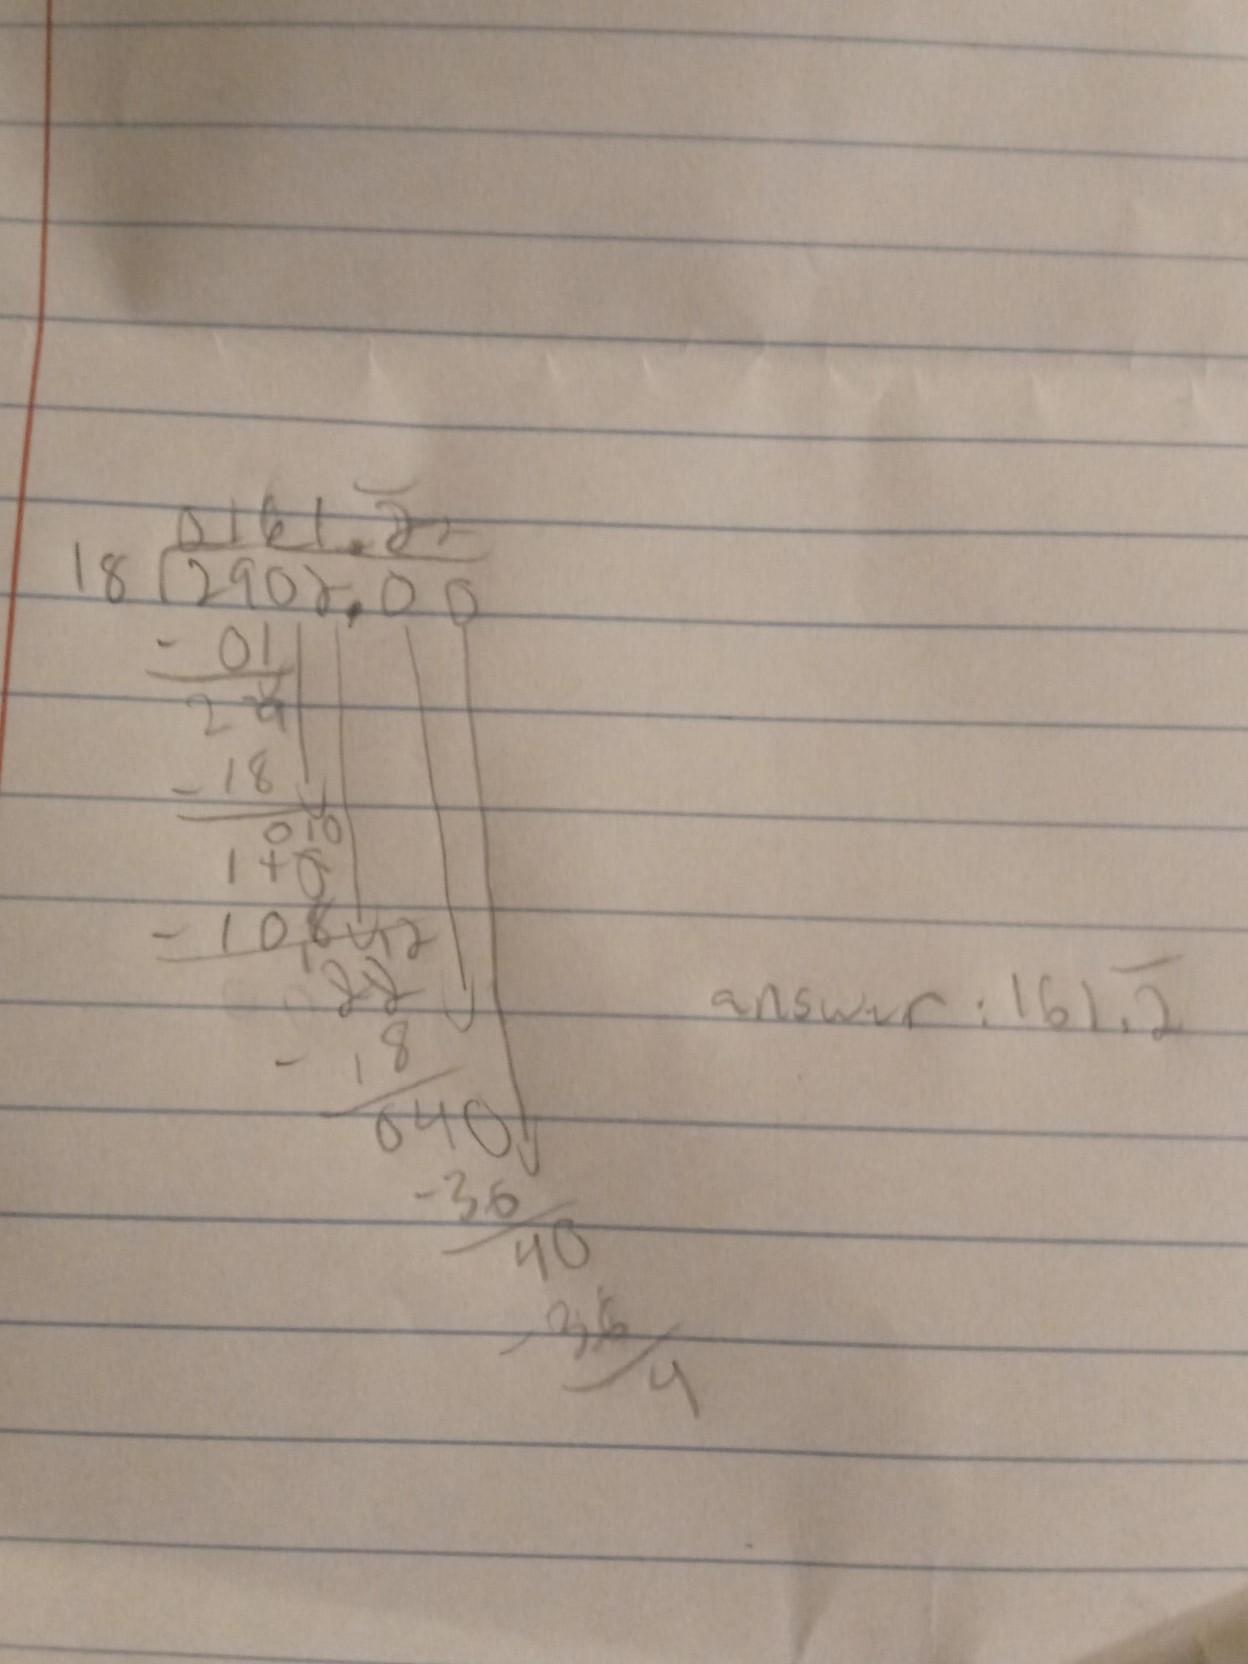 0161.22
18 2902.00
- 01
29
- 18
0 10
110
- 108 12
22
- 18
040
-36
40
- 36
4
answer: 161.2̅